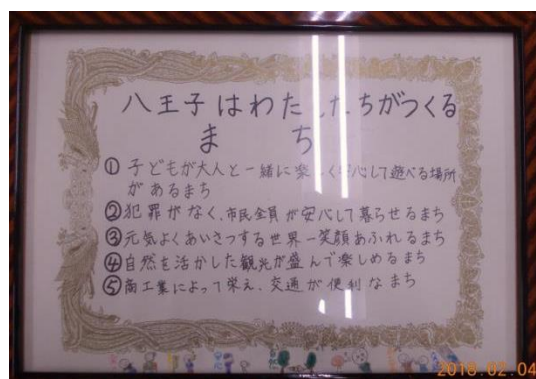 八王子はわたしたちがつくる
まち
① 子どもが大人と一緒に楽しく安心して遊べる場所
があるまち
② 犯罪がなく、市民全員が安心して暮らせるまち
③ 元気よくあいさつする世界一笑顔あふれるまち
④ 自然を活かした観光が盛んで楽しめるまち
⑤ 商工業によって栄え、交通が便利なまち
2018.02.04